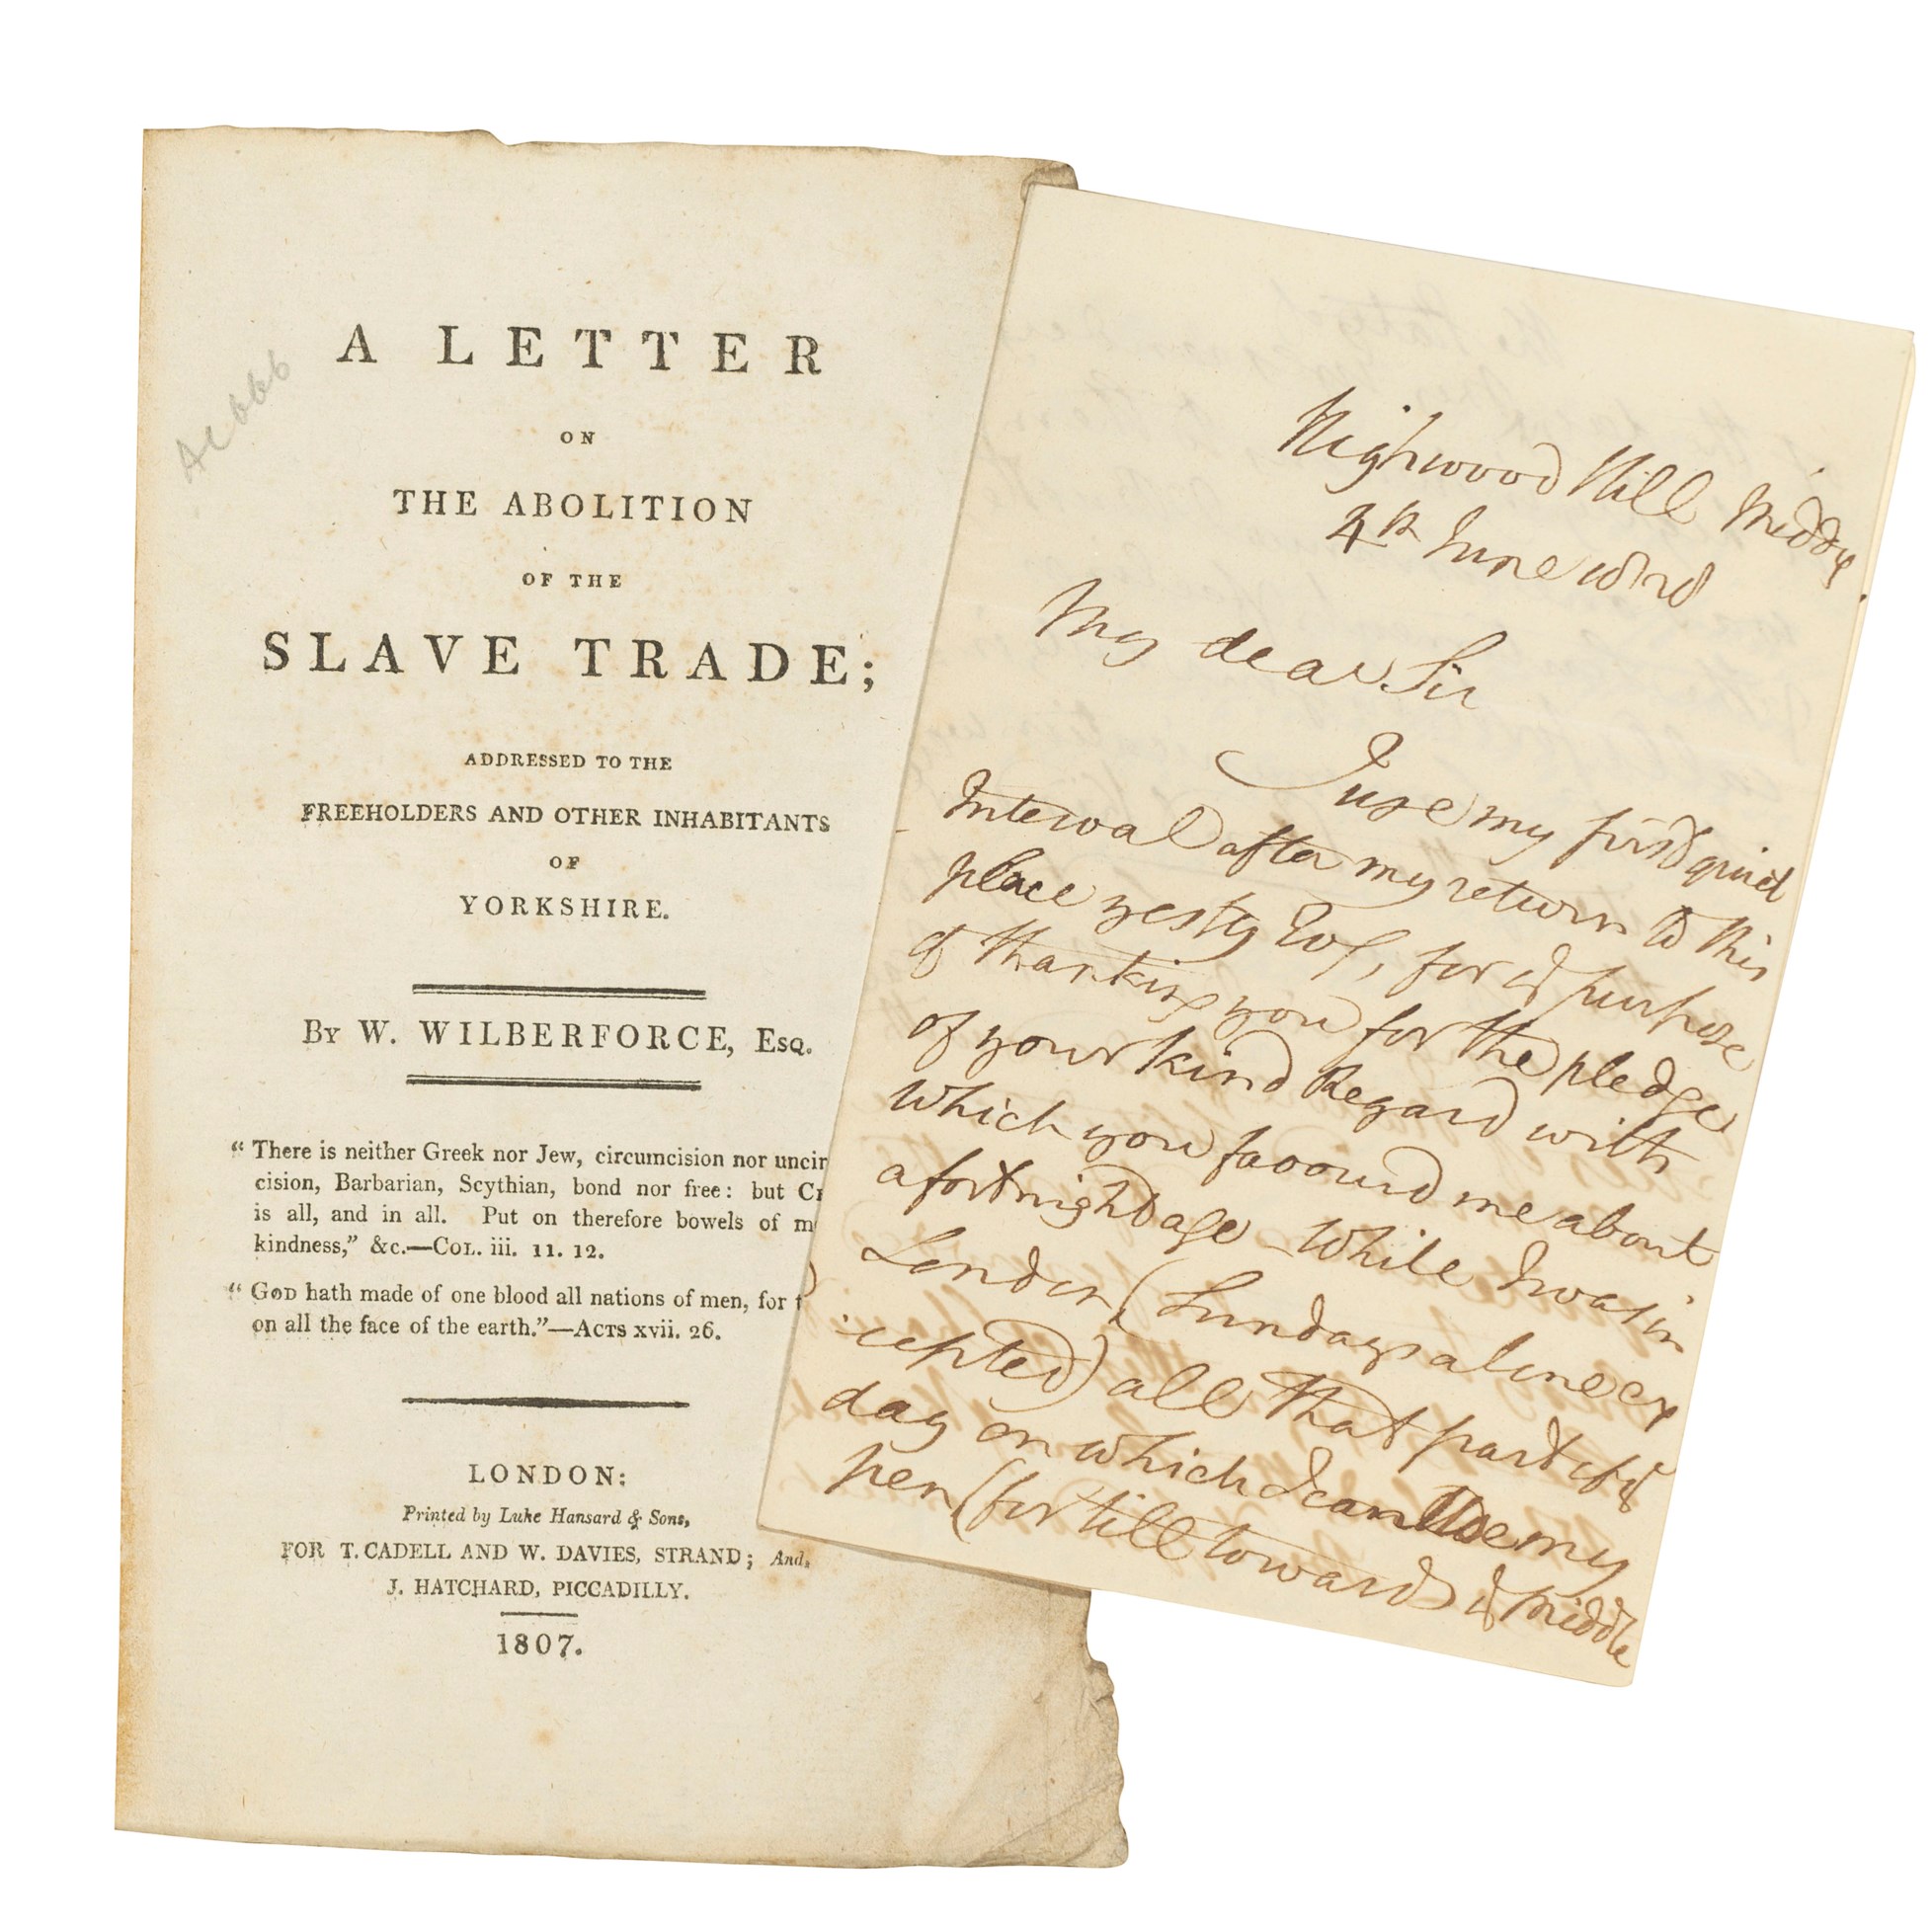 A LETTER
ON
THE ABOLITION
OF THE
SLAVE TRADE;
ADDRESSED TO THE
FREEHOLDERS AND OTHER INHABITANTS
OF
YORKSHIRE.
By W. WILBERFORCE, Esq.
“ There is neither Greek nor Jew, circumcision nor uncir
cision, Barbarian, Scythian, bond nor free: but
is all, and in all. Put on therefore bowels of
kindness,” &c.—Col. iii. 11. 12.
“ God hath made of one blood all nations of men, for
on all the face of the earth.”—Acts xvii. 26.
LONDON:
Printed by Luke Hansard & Sons,
FOR T. CADELL AND W. DAVIES, STRAND; And,
J. HATCHARD, PICCADILLY.
1807.
Highwood Hill Middx.
4th June
My dear Sir
I use my first quiet
Interval after my return to this
place yesty Evg, for ye purpose
of thanking you for the pledge
of your kind Regard with
which you favourd me about
a fortnight ago – While I was in
London, (Sundays alone ex
cepted) all that part of ye
day on which I can Use my
pen (for till towards ye middle